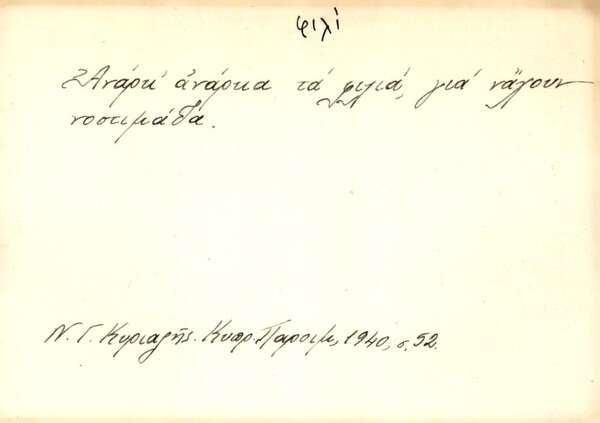 φιλί
Ἀνάρκ' ἀνάρκα τά φιλιά, γιά νἄχουν
νοστιμάδα.
Ν. Γ. Κυριαζῆς. Κυπρ. Παροιμ, 1940, σ. 52.